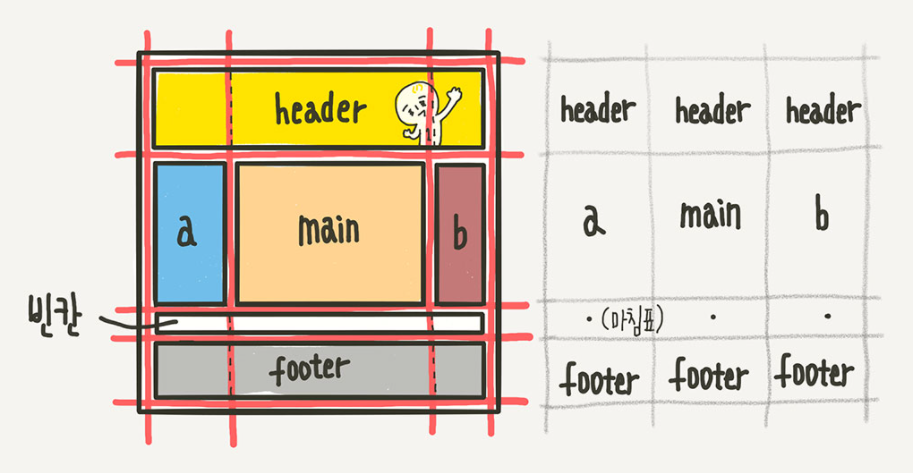 header
a
main
b
빈칸
footer
header header header
a main b
. (마침표) . .
footer footer footer